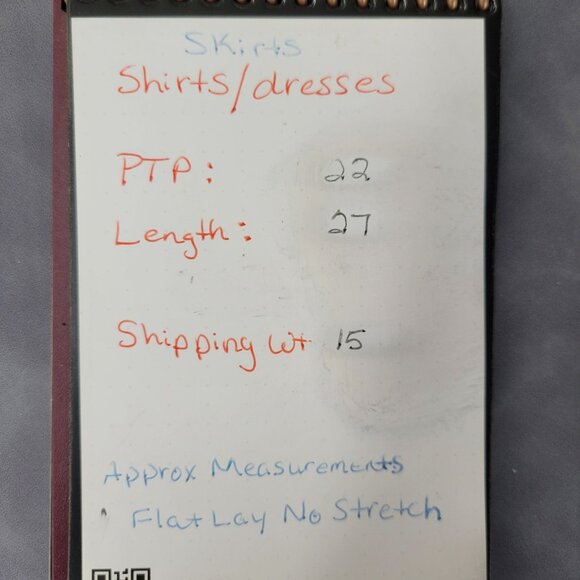 Skirts
Shirts/dresses
PTP: 22
Length: 27
Shipping Wt 15
Approx Measurements
Flat Lay No Stretch